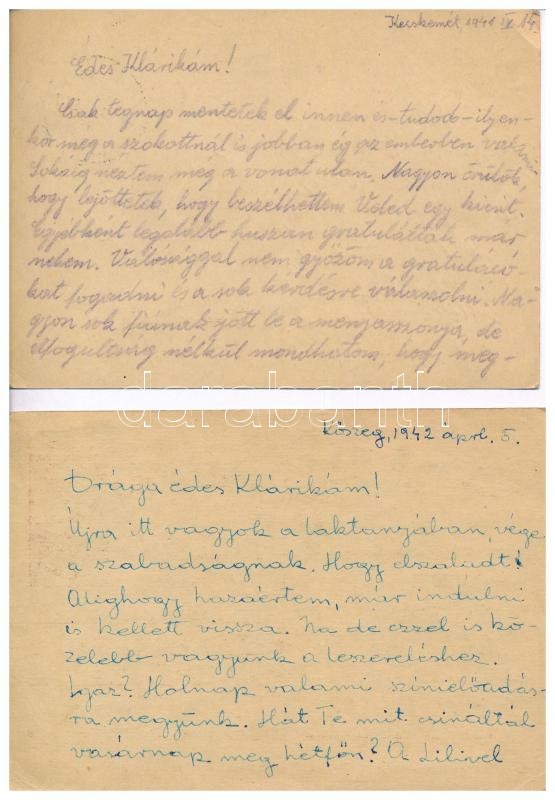 Kecskemét, 1941 IX 14.
Édes Klárikám!
Csak tegnap mentetek el innen és - tudod - ilyen-
kor még a szokottnál is jobban ég az emberben valami.
Sokáig néztem még a vonat után. Nagyon örülök,
hogy lejöttetek, hogy beszélhettem Veled egy kicsit.
Egyébként legalább huszan gratuláltak már
nekem. Valósággal nem győzöm a gratuláció-
kat fogadni és a sok kérdésre válaszolni. Na-
gyon sok fiúnak jött le a menyasszonya, de
elfogultság nélkül mondhatom, hogy meg-
darabanth
Kőszeg, 1942 ápril. 5.
Drága édes Klárikám!
Újra itt vagyok a laktanyában, vége
a szabadságnak. Hogy elszaladt!
Alighogy hazaértem, már indulni
is kellett vissza. Na de ezzel is kö-
zelebb vagyunk a leszereléshez.
Igaz? Holnap valami színielőadás-
ra megyünk. Hát Te mit csináltál
vasárnap meg hétfőn? A Lilivel